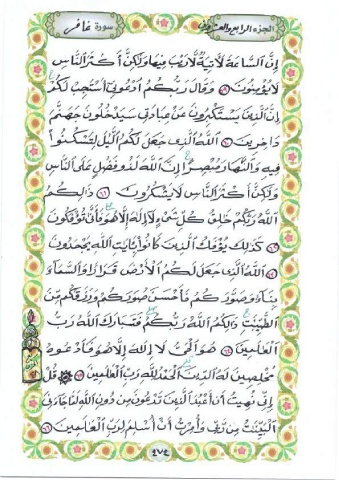 الجزء الرابع والعشرون
سورة غافر
إِنَّ السَّاعَةَ لَآتِيَةٌ لَّا رَيْبَ فِيهَا وَلَٰكِنَّ أَكْثَرَ النَّاسِ
لَا يُؤْمِنُونَ ٥٩ وَقَالَ رَبُّكُمُ ادْعُونِي أَسْتَجِبْ لَكُمْ
إِنَّ الَّذِينَ يَسْتَكْبِرُونَ عَنْ عِبَادَتِي سَيَدْخُلُونَ جَهَنَّمَ
دَاخِرِينَ ٦٠ اللَّهُ الَّذِي جَعَلَ لَكُمُ اللَّيْلَ لِتَسْكُنُوا
فِيهِ وَالنَّهَارَ مُبْصِرًا إِنَّ اللَّهَ لَذُو فَضْلٍ عَلَى النَّاسِ
وَلَٰكِنَّ أَكْثَرَ النَّاسِ لَا يَشْكُرُونَ ٦١ ذَٰلِكُمُ
اللَّهُ رَبُّكُمْ خَالِقُ كُلِّ شَيْءٍ لَّا إِلَٰهَ إِلَّا هُوَ فَأَنَّىٰ تُؤْفَكُونَ
٦٢ كَذَٰلِكَ يُؤْفَكُ الَّذِينَ كَانُوا بِآيَاتِ اللَّهِ يَجْحَدُونَ
٦٣ اللَّهُ الَّذِي جَعَلَ لَكُمُ الْأَرْضَ قَرَارًا وَالسَّمَاءَ
بِنَاءً وَصَوَّرَكُمْ فَأَحْسَنَ صُوَرَكُمْ وَرَزَقَكُم مِّنَ
الطَّيِّبَاتِ ذَٰلِكُمُ اللَّهُ رَبُّكُمْ فَتَبَارَكَ اللَّهُ رَبُّ
الْعَالَمِينَ ٦٤ هُوَ الْحَيُّ لَا إِلَٰهَ إِلَّا هُوَ فَادْعُوهُ
مُخْلِصِينَ لَهُ الدِّينَ الْحَمْدُ لِلَّهِ رَبِّ الْعَالَمِينَ ٦٥ قُلْ
إِنِّي نُهِيتُ أَنْ أَعْبُدَ الَّذِينَ تَدْعُونَ مِن دُونِ اللَّهِ لَمَّا جَاءَنِيَ
الْبَيِّنَاتُ مِن رَّبِّي وَأُمِرْتُ أَنْ أُسْلِمَ لِرَبِّ الْعَالَمِينَ ٦٦
٤٧٤